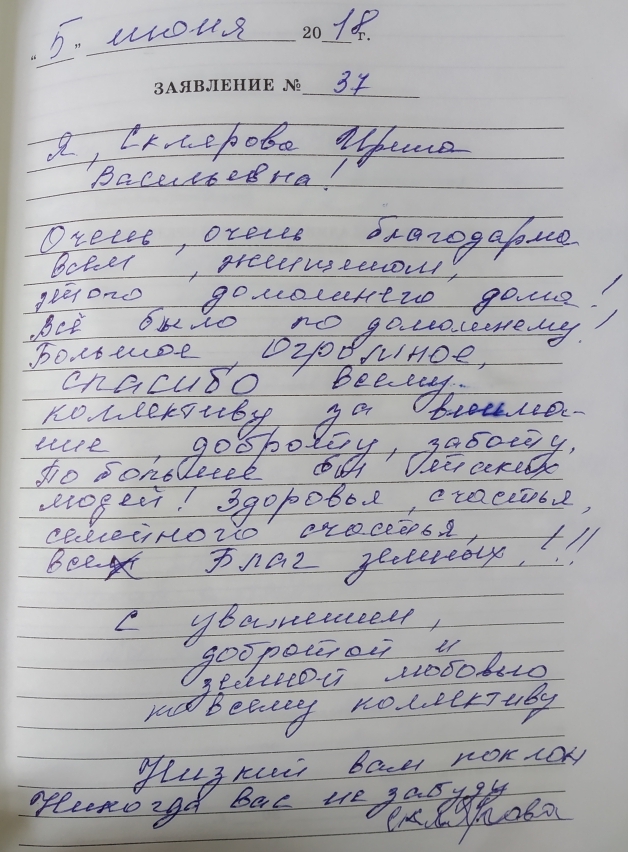 " 5 " июня 2018 г.
ЗАЯВЛЕНИЕ № 37
Я, Склярова Ирина
Васильевна!
Очень, очень благодарна
всем, женщинам,
этого домашнего дома!
Всё было по домашнему!
Большое, Огромное,
спасибо всему
коллективу за внима-
ние, доброту, заботу,
По больше бы таких
людей! Здоровья, счастья,
семейного счастья,
всех Благ земных,!!!
С уважением,
добротой и
земной любовью
ко всему коллективу
Низкий вам поклон
Никогда вас не забуду
Склярова